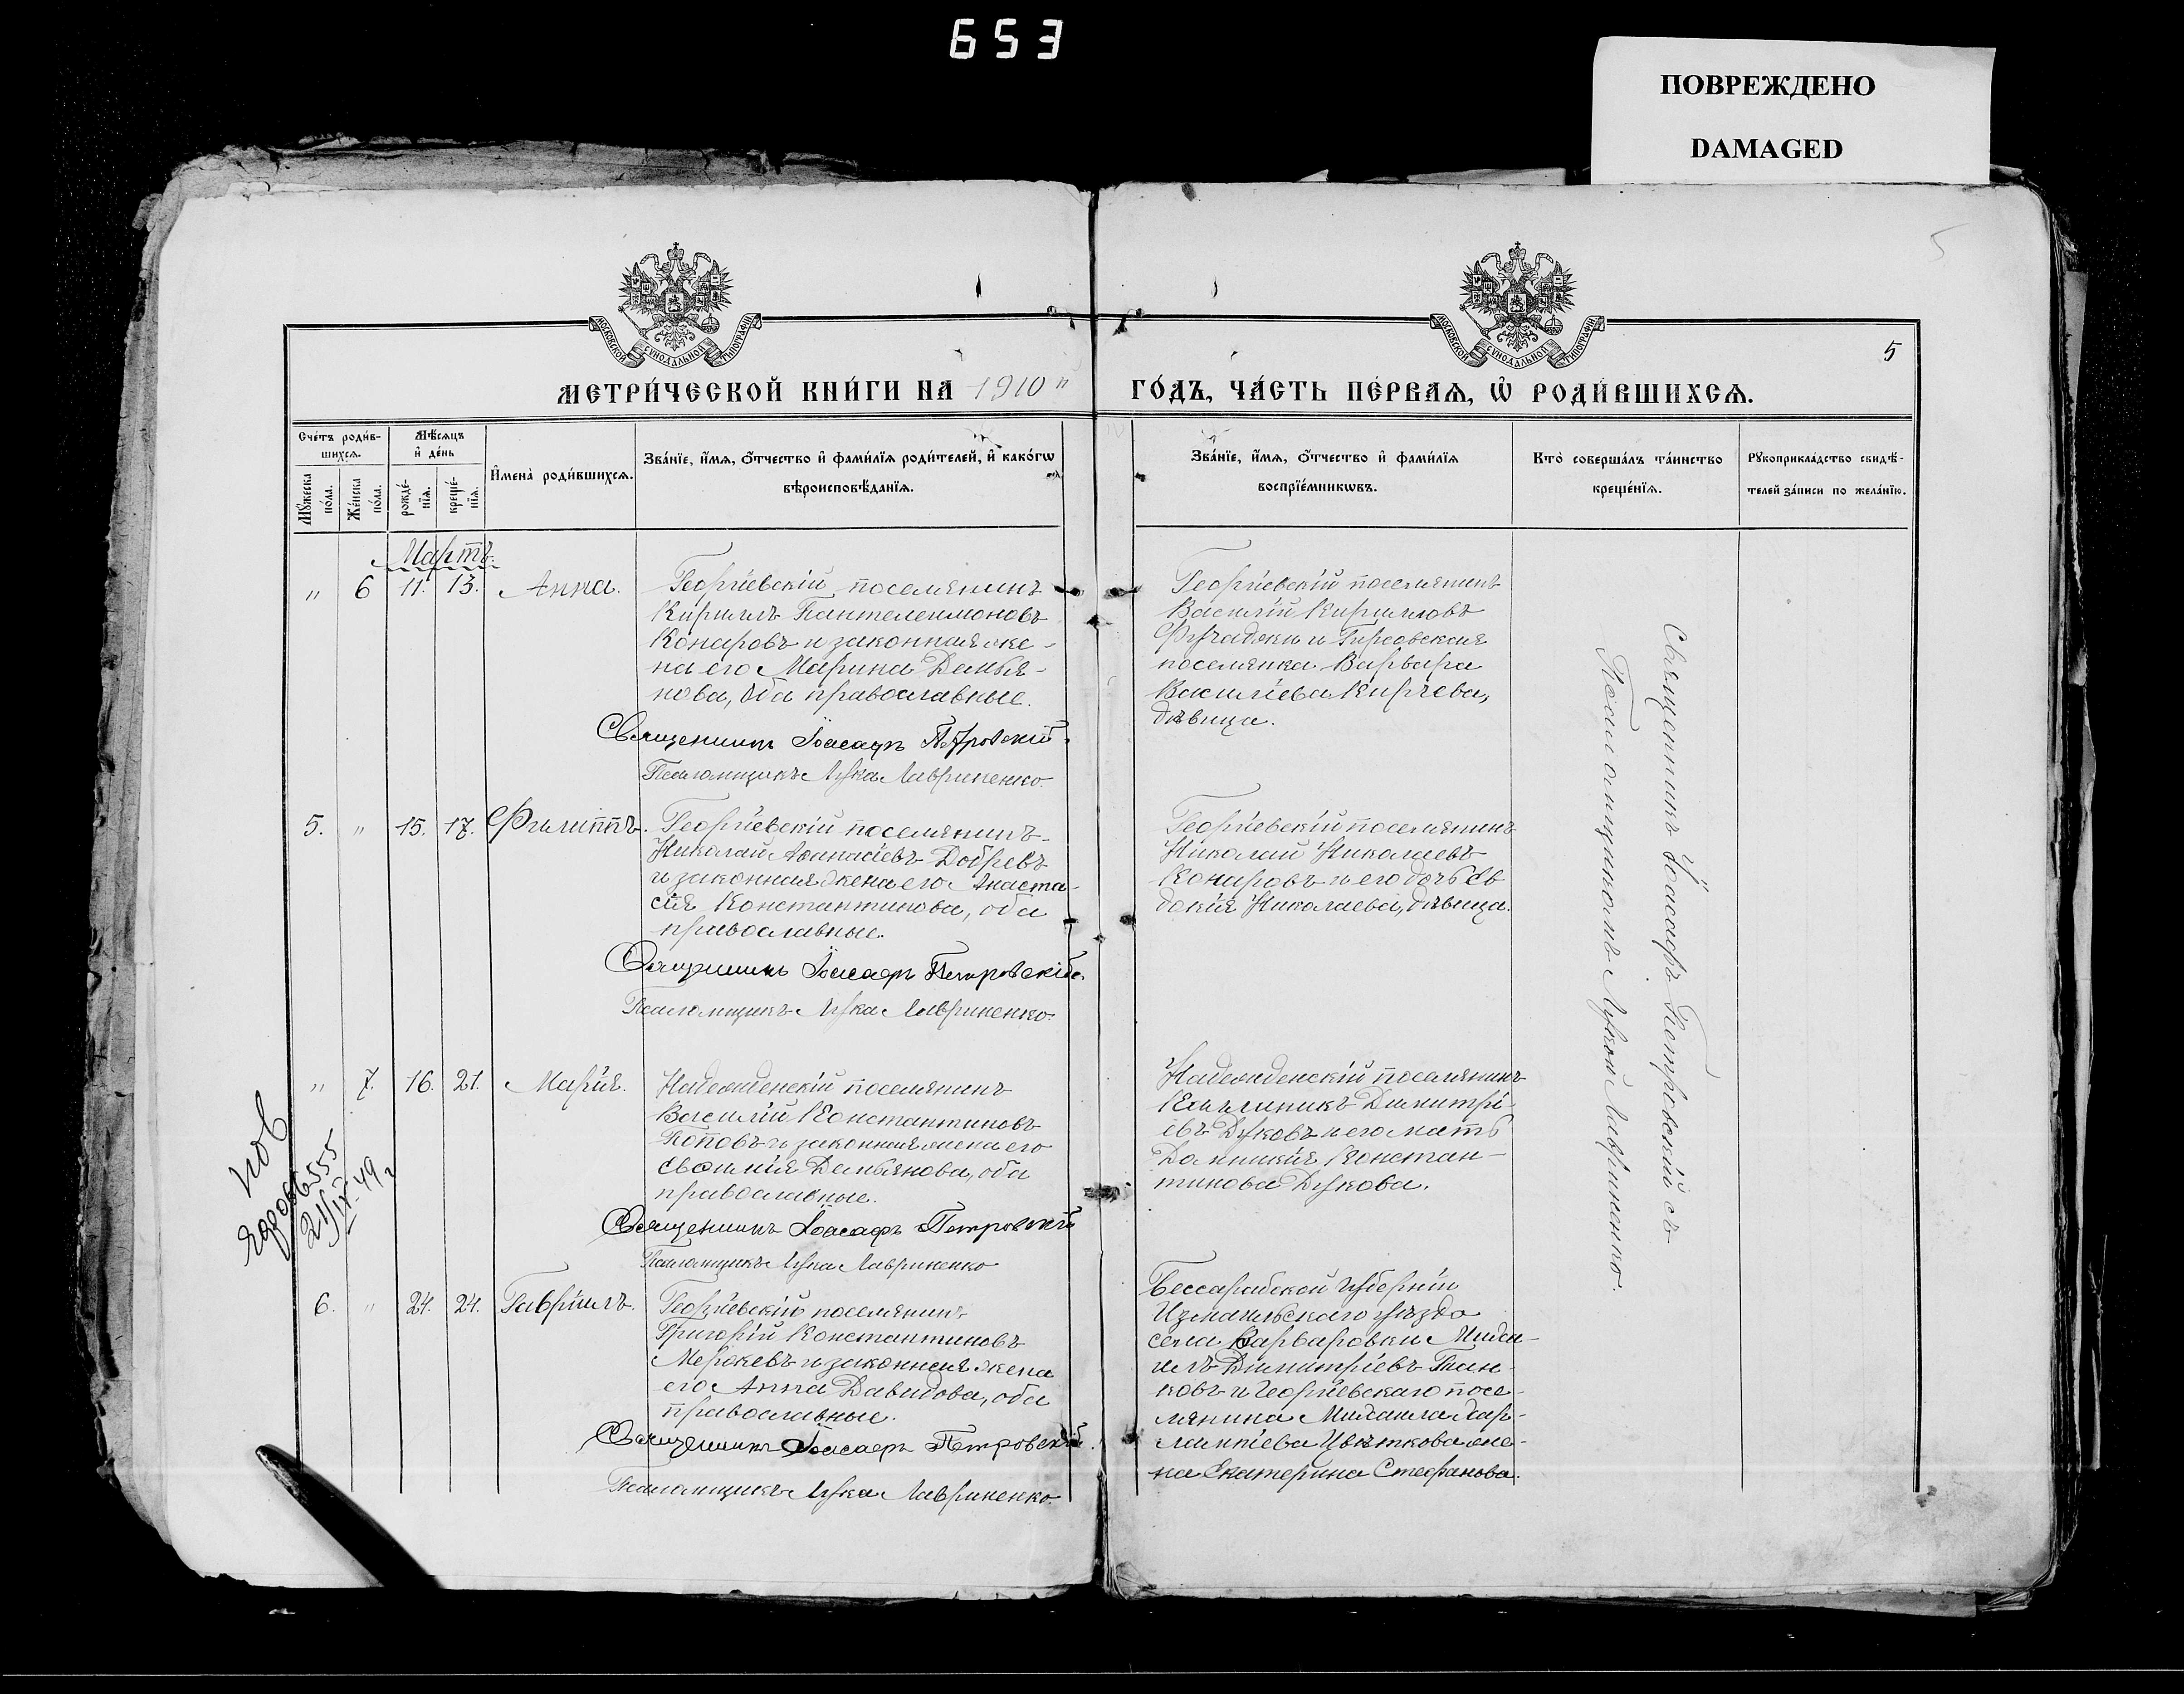 653
ПОВРЕЖДЕНО
DAMAGED
5
5
МЕТРИ́ЧЕСКОЙ КНИ́ГИ НА 1910
ГО́ДЪ, ЧА́СТЬ ПЕ́РВАѦ, Ѡ҆ РОДИ́ВШИХСѦ.
Сче́тъ роди́в-
шихсѧ.
Мꙋ́жеска по́ла.
Же́нска по́ла.
Мѣ́сѧцъ
и҆ де́нь
рожде́-нїѧ.
креще́-нїѧ.
И҆мена̀ роди́вшихсѧ.
Зва́нїе, и҆́мѧ, ѻ҆́тчество и҆ фами́лїѧ роди́телей, и҆ како́гѡ
вѣроисповѣ́данїѧ.
Зва́нїе, и҆́мѧ, ѻ҆́тчество и҆ фами́лїѧ
воспрїе́мникѡвъ.
Кто̀ соверша́лъ та́инство
креще́нїѧ.
Рꙋкоприкла́дство свидѣ́-
телей за́писи по жела́нїю.
Мартъ.
" 6 11. 13. Анна.
Георгіевскій поселянинъ
Кириллъ Пантелеимоновъ
Конаровъ и законная же-
на его Марина Демья-
нова, оба православные.
Священникъ Іоасафъ Петровскій.
Псаломщикъ Лука Лавриненко.
Георгіевскій поселянинъ
Василій Кирилловъ
и
поселянка Варвара
Василіева Кирчева,
дѣвица.
5. " 15. 17. Филиппъ.
Георгіевскій поселянинъ
Николай Аѳанасіевъ Добревъ
и законная жена его Анаста-
сія Константинова, оба
православные.
Священникъ Іоасафъ Петровскій.
Псаломщикъ Лука Лавриненко.
Георгіевскій поселянинъ
Николай Николаевъ
Конаровъ и его дочь Ев
докія Николаева, дѣвица.
" 7. 16. 21. Марія.
Надежденскій поселянинъ
Василій Константиновъ
Поповъ и законная жена его
Евѳимія Демьянова, оба
православные.
Священникъ Іоасафъ Петровскій
Псаломщикъ Лука Лавриненко
Надежденскій поселянинъ
Каллиникъ Димитрі-
евъ Дуковъ и его мать
Домникія Констан-
тинова Дукова.
21/IX-49г
6. " 24. 24. Гавріилъ.
Георгіевскій поселянинъ
Григорій Константиновъ
и законная жена
его Анна Давидова, оба
православные.
Священникъ Іоасафъ Петровскій.
Псаломщикъ Лука Лавриненко
Бессарабской губерніи
Измаильскаго уѣзда
села Варваровки Миха-
илъ Димитріевъ
и Георгіевскаго посе-
лянина Михаила Хар-
лампіева Цвѣткова же-
на Екатерина Стефанова.
Священникъ Іоасафъ Петровскій съ
Псаломщикомъ Лукой Лавриненко.